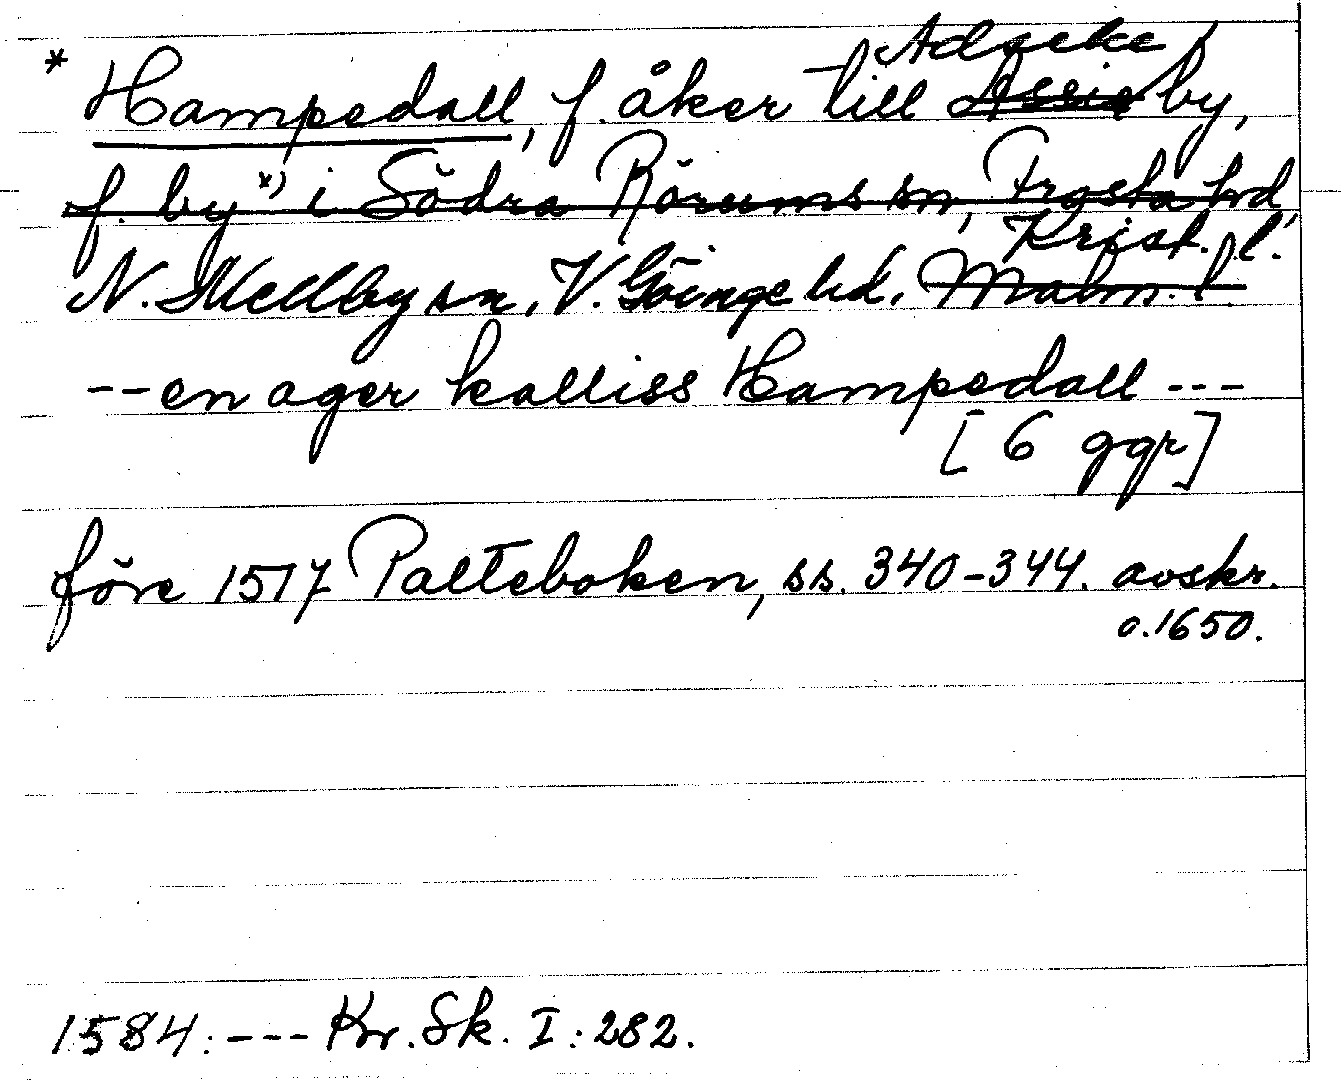 * Hampedall, f. åker till Adseke by,
f. by *) i Södra Rörums sn, Frosta hd,
N. Mellby sn, V. Göinge hd, Krist. l.
Malm. l.
--en ager kalliss Hampedall ---
[6 ggr]
före 1517 Palteboken, ss. 340-344. avskr.
o. 1650.
1584: --- Kr. Sk. I: 282.